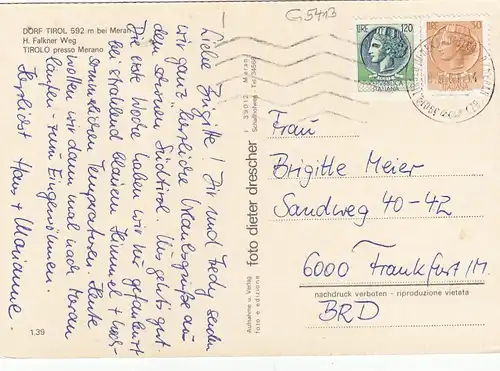 G5413
DORF TIROL 592 m bei Meran
H. Falkner Weg
TIROLO presso Merano
Liebe Brigitte! Dir und Fredy senden
wir ganz herzliche Urlaubsgrüße aus
dem schönen Südtirol. Uns geht's gut.
Die erste Woche haben wir hier gefaulenzt
bei strahlend blauem Himmel + hoch-
sommerlichen Temperaturen. Heute
wollen wir dann mal nach Meran
laufen - zum Eingewöhnen.
Herzlichst Hans + Marianne.
1,39
Aufnahme u. Verlag
foto e edizione
foto dieter drescher
I 39012 Meran
LIRE 120
ITALIANA
Frau
Brigitte Meier
Sandweg 40-42
6000 Frankfurt/M.
nachdruck verboten - riproduzione vietata
BRD